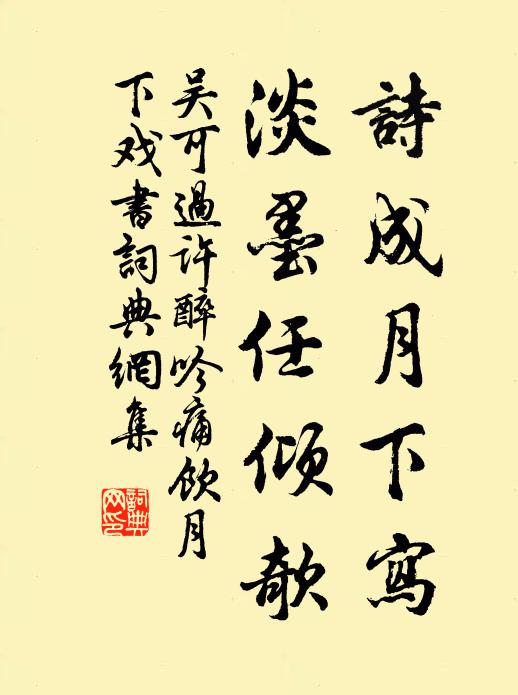 詩成月下寫
淡墨任傾欹
吴可過許醉吟痛飲月
下戏書詞典網集
詞典网印